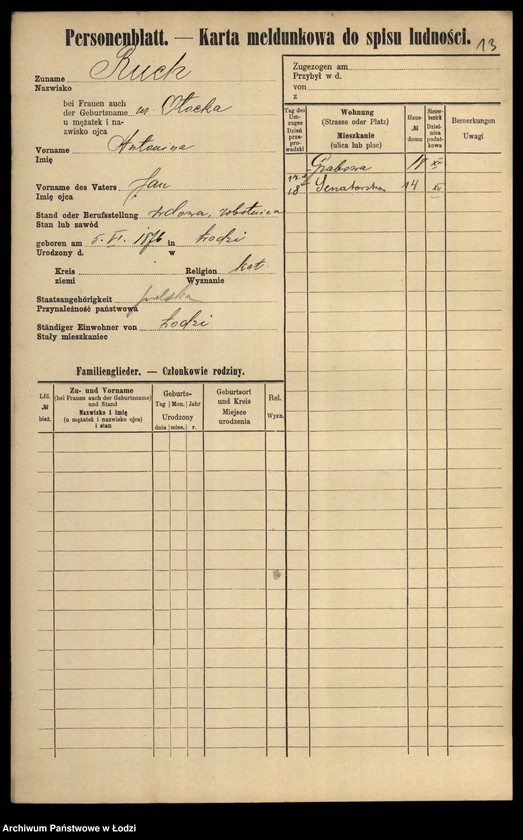 Personenblatt. — Karta meldunkowa do spisu ludności.
13
Zuname
Nazwisko
Ruck
bei Frauen auch
der Geburtsname
u mężatek i na-
zwisko ojca
Otocka
Vorname
Imię
Antonina
Vorname des Vaters
Imię ojca
Jan
Stand oder Berufsstellung
Stan lub zawód
wdowa, robotnica
geboren am 5. VI. 1876 in Łodzi
Urodzony d. w
Kreis
ziemi
Religion
Wyznanie
kat
Staatsangehörigkeit
Przynależność państwowa
polska
Ständiger Einwohner von
Stały mieszkaniec
Łodzi
Zugezogen am
Przybył w d.
von
z
Tag des
Um-
zuges
Dzień
prze-
prowadzki
Wohnung
(Strasse oder Platz)
Mieszkanie
(ulica lub plac)
Haus-
№
domu
Steuer-
bezirk
Dziel-
nica
podat-
kowa
Bemerkungen
Uwagi
Grabowa 11 XII
Senatorska 14 XII
Familienglieder. — Członkowie rodziny.
Lfd.
№
bież.
Zu- und Vorname
(bei Frauen auch der Geburtsname)
und Stand
Nazwisko i imię
(u mężatek i nazwisko ojca)
i stan
Geburts-
Tag Mon. Jahr
Urodzony
dnia mies. r.
Geburtsort
und Kreis
Miejsce
urodzenia
Rel.
Wyzn.
Archiwum Państwowe w Łodzi